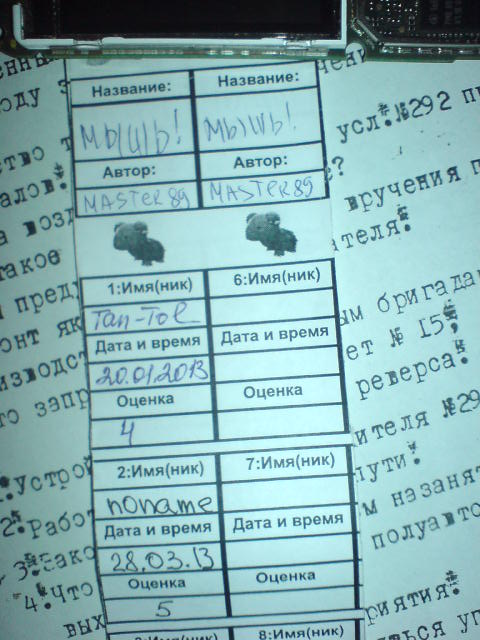 Название: Название:
Мышь! Мышь!
Автор: Автор:
MASTER89 MASTER89
1:Имя(ник) 6:Имя(ник)
Tan-Tol
Дата и время Дата и время
20.01.2013
Оценка Оценка
4
2:Имя(ник) 7:Имя(ник)
noname
Дата и время Дата и время
28.03.13
Оценка Оценка
5
8:Имя(ник)
оду
ство
усл. №292
алов.
?
вручения
а
такое
ателя.
пред
ым бригада
онт як
ет № 15,
изводс
реверса.
го запр
ителя №29
1.устрой
пути.
2.Работ
м назанят
3.Зако
полуавто
4.Что
вых
риятия.